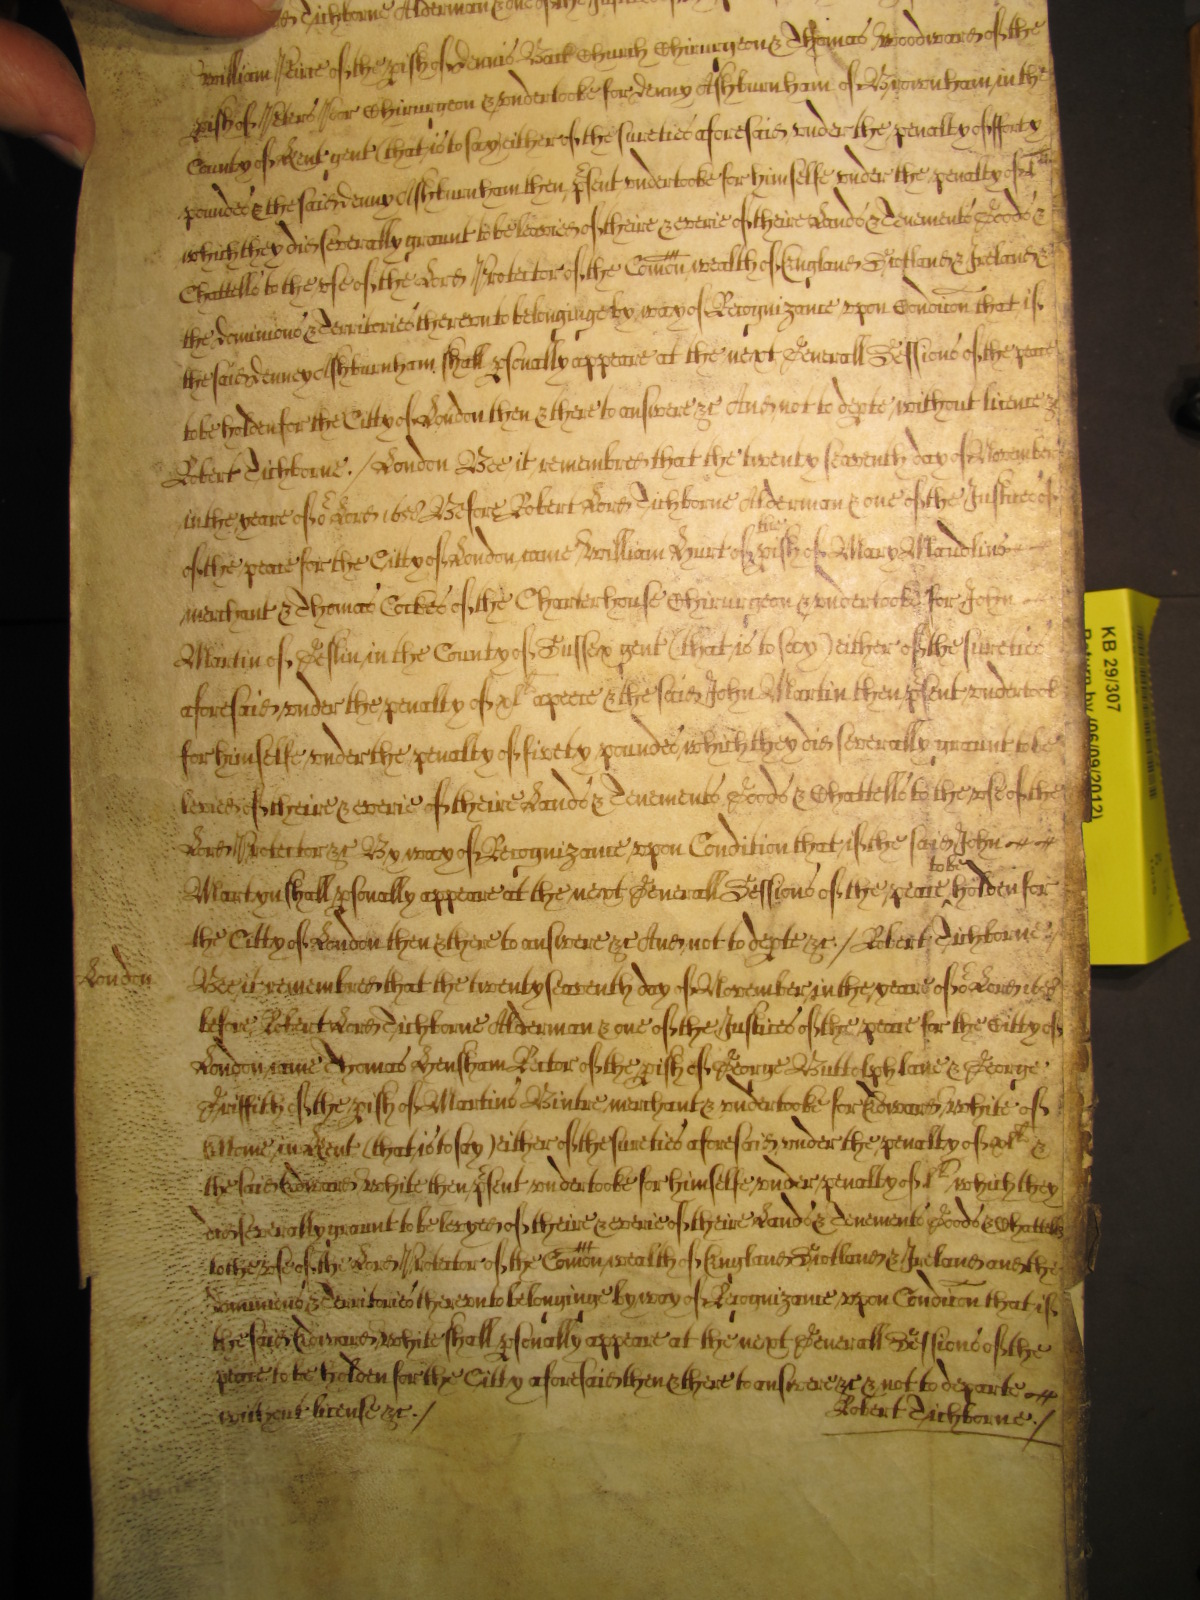 Tichborne Alderman & one of the Justices of
William Peirce of the pish of Dennis Back Church Chirurgeon & Thomas Woodward of the
pish of Peters Poor Chirurgeon & undertooke for Denny Ashburnham of Broomham, in the
County of Kent gent (that is to say) either of the sureties aforesaid, vnder the penalty of fforty
poundes & the said Denny Ashburnham then, psent vndertooke for himselfe vnder the penalty of
which they did severally graunt to be leavied of theire & everie of theire Lands & Tenements Goods &
Chattells to the vse of the Lord Protector of the Comon wealth of England Scotland & Ireland &
the dominions & Territories thereunto belonginge by way of Recognizance vpon Condicon that if
the said Denney Ashburnham shall psonally appeare at the next Generall Sessions of the peace
to be holden for the Citty of London then & there to answere &c And not to depte without licence &
Robert Tichborne ./ London Bee it remembred that the twenty seaventh day of November
in the yeare of or Lord 1658 Before Robert Lord Tichborne Alderman & one of the Justices of
of the peace for the Citty of London came William Hurt of the pish of Mary Maudlins
merchant & Thomas Cockes of the Charterhouse Chirurgeon & vndertooke for John
Martin of Eeslin, in the County of Sussex gent (that is to say) either of the sureties
aforesaid, vnder the penalty of xl li apeece & the said John Martin then psent vndertook
for himselfe vnder the penalty of fivety poundes, which they did severally graunt to be
levied of theire & everie of theire Lands & Tenements Goods & Chattells to the vse of the
Lord Protector &c By way of Recognizance vpon Condition that if the said John
Martyn shall psonally appeare at the next Generall Sessions of the peace to be holden for
the Citty of London then & there to answere &c And not to depte &c./ Robert Tichborne
London
Bee it remembred that the twenty seaventh day of November, in the yeare of or Lord 1658
before Robert Lord Tichborne Alderman & one of the Justices of the peace for the Citty of
London came Thomas Hensham Rector of the pish of George Buttolph lane & George
Griffith of the pish of Martins Vintre, merchant & vndertooke for Edward White of
in Kent (that is to say) either of the sureties aforesaid vnder the penalty of xl li &
the said Edward White then psent vndertooke for himselfe, vnder penalty of l li, which they
did severally graunt to be levyed of theire & everie of theire Lands & Tenements Goods & Chattells
to the vse of the Lord Protector of the Comon wealth of England Scotland & Ireland and the
Dominions & Territories thereunto belonginge by way of Recognizance, vpon Condicon that if
the said Edward White shall psonally appeare at the next Generall Sessions of the
peace to be holden for the Citty aforesaid then & there to answere &c & not to departe
without license &c./
Robert Tichborne ./
KB 29/307
Return by (06/09/2012)